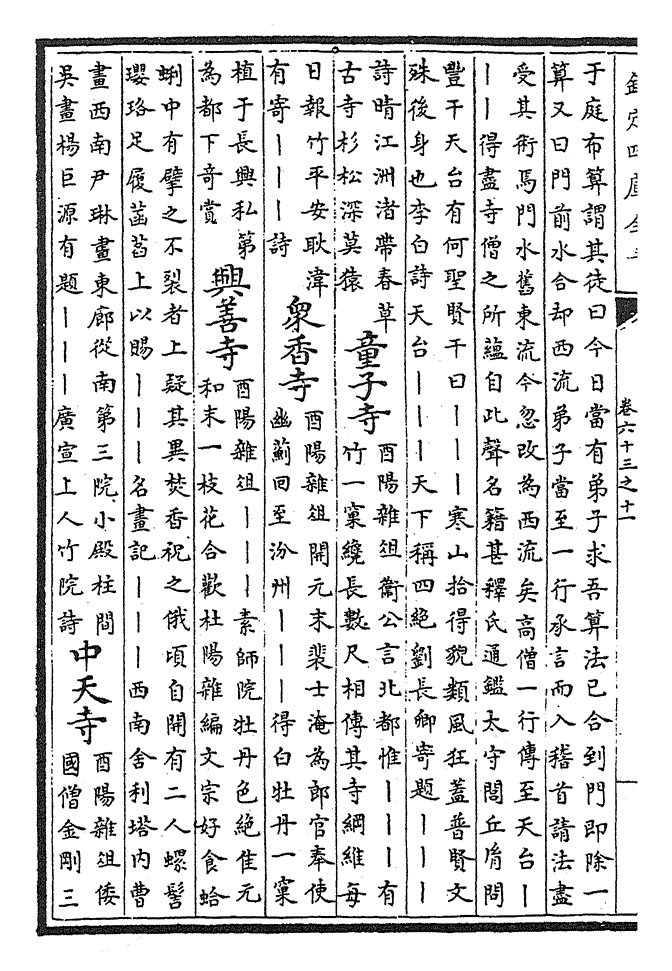 欽定四庫全
卷六十三之十一
于庭布算謂其徒曰今日當有弟子求吾算法已合到門即除一
算又曰門前水合却西流弟子當至一行承言而入稽首請法盡
受其術焉門水舊東流今忽改為西流矣高僧一行傳至天台丨
丨丨得盡寺僧之所蘊自此聲名籍甚釋氏通鑑太守閭丘胤問
豐干天台有何聖賢干曰丨丨丨寒山拾得貌類風狂蓋普賢文
殊後身也李白詩天台丨丨丨天下稱四絕劉長卿寄題丨丨丨
詩晴江洲渚帶春草
古寺杉松深莫猿
童子寺
酉陽雜俎衞公言北都惟丨丨丨有
竹一窠纔長數尺相傳其寺綱維每
日報竹平安耿湋
有寄丨丨丨詩
衆香寺
酉陽雜俎開元末裴士淹為郎官奉使
幽薊回至汾州丨丨丨得白牡丹一窠
植于長興私第
為都下奇賞
興善寺
酉陽雜俎丨丨丨素師院牡丹色絕佳元
和末一枝花合歡杜陽雜編文宗好食蛤
蜊中有擘之不裂者上疑其異焚香祝之俄頃自開有二人螺髻
瓔珞足履菡萏上以賜丨丨丨名畫記丨丨丨西南舍利塔内曹
畫西南尹琳畫東廊從南第三院小殿柱間
吳畫楊巨源有題丨丨丨廣宣上人竹院詩
中天寺
酉陽雜俎倭
國僧金剛三